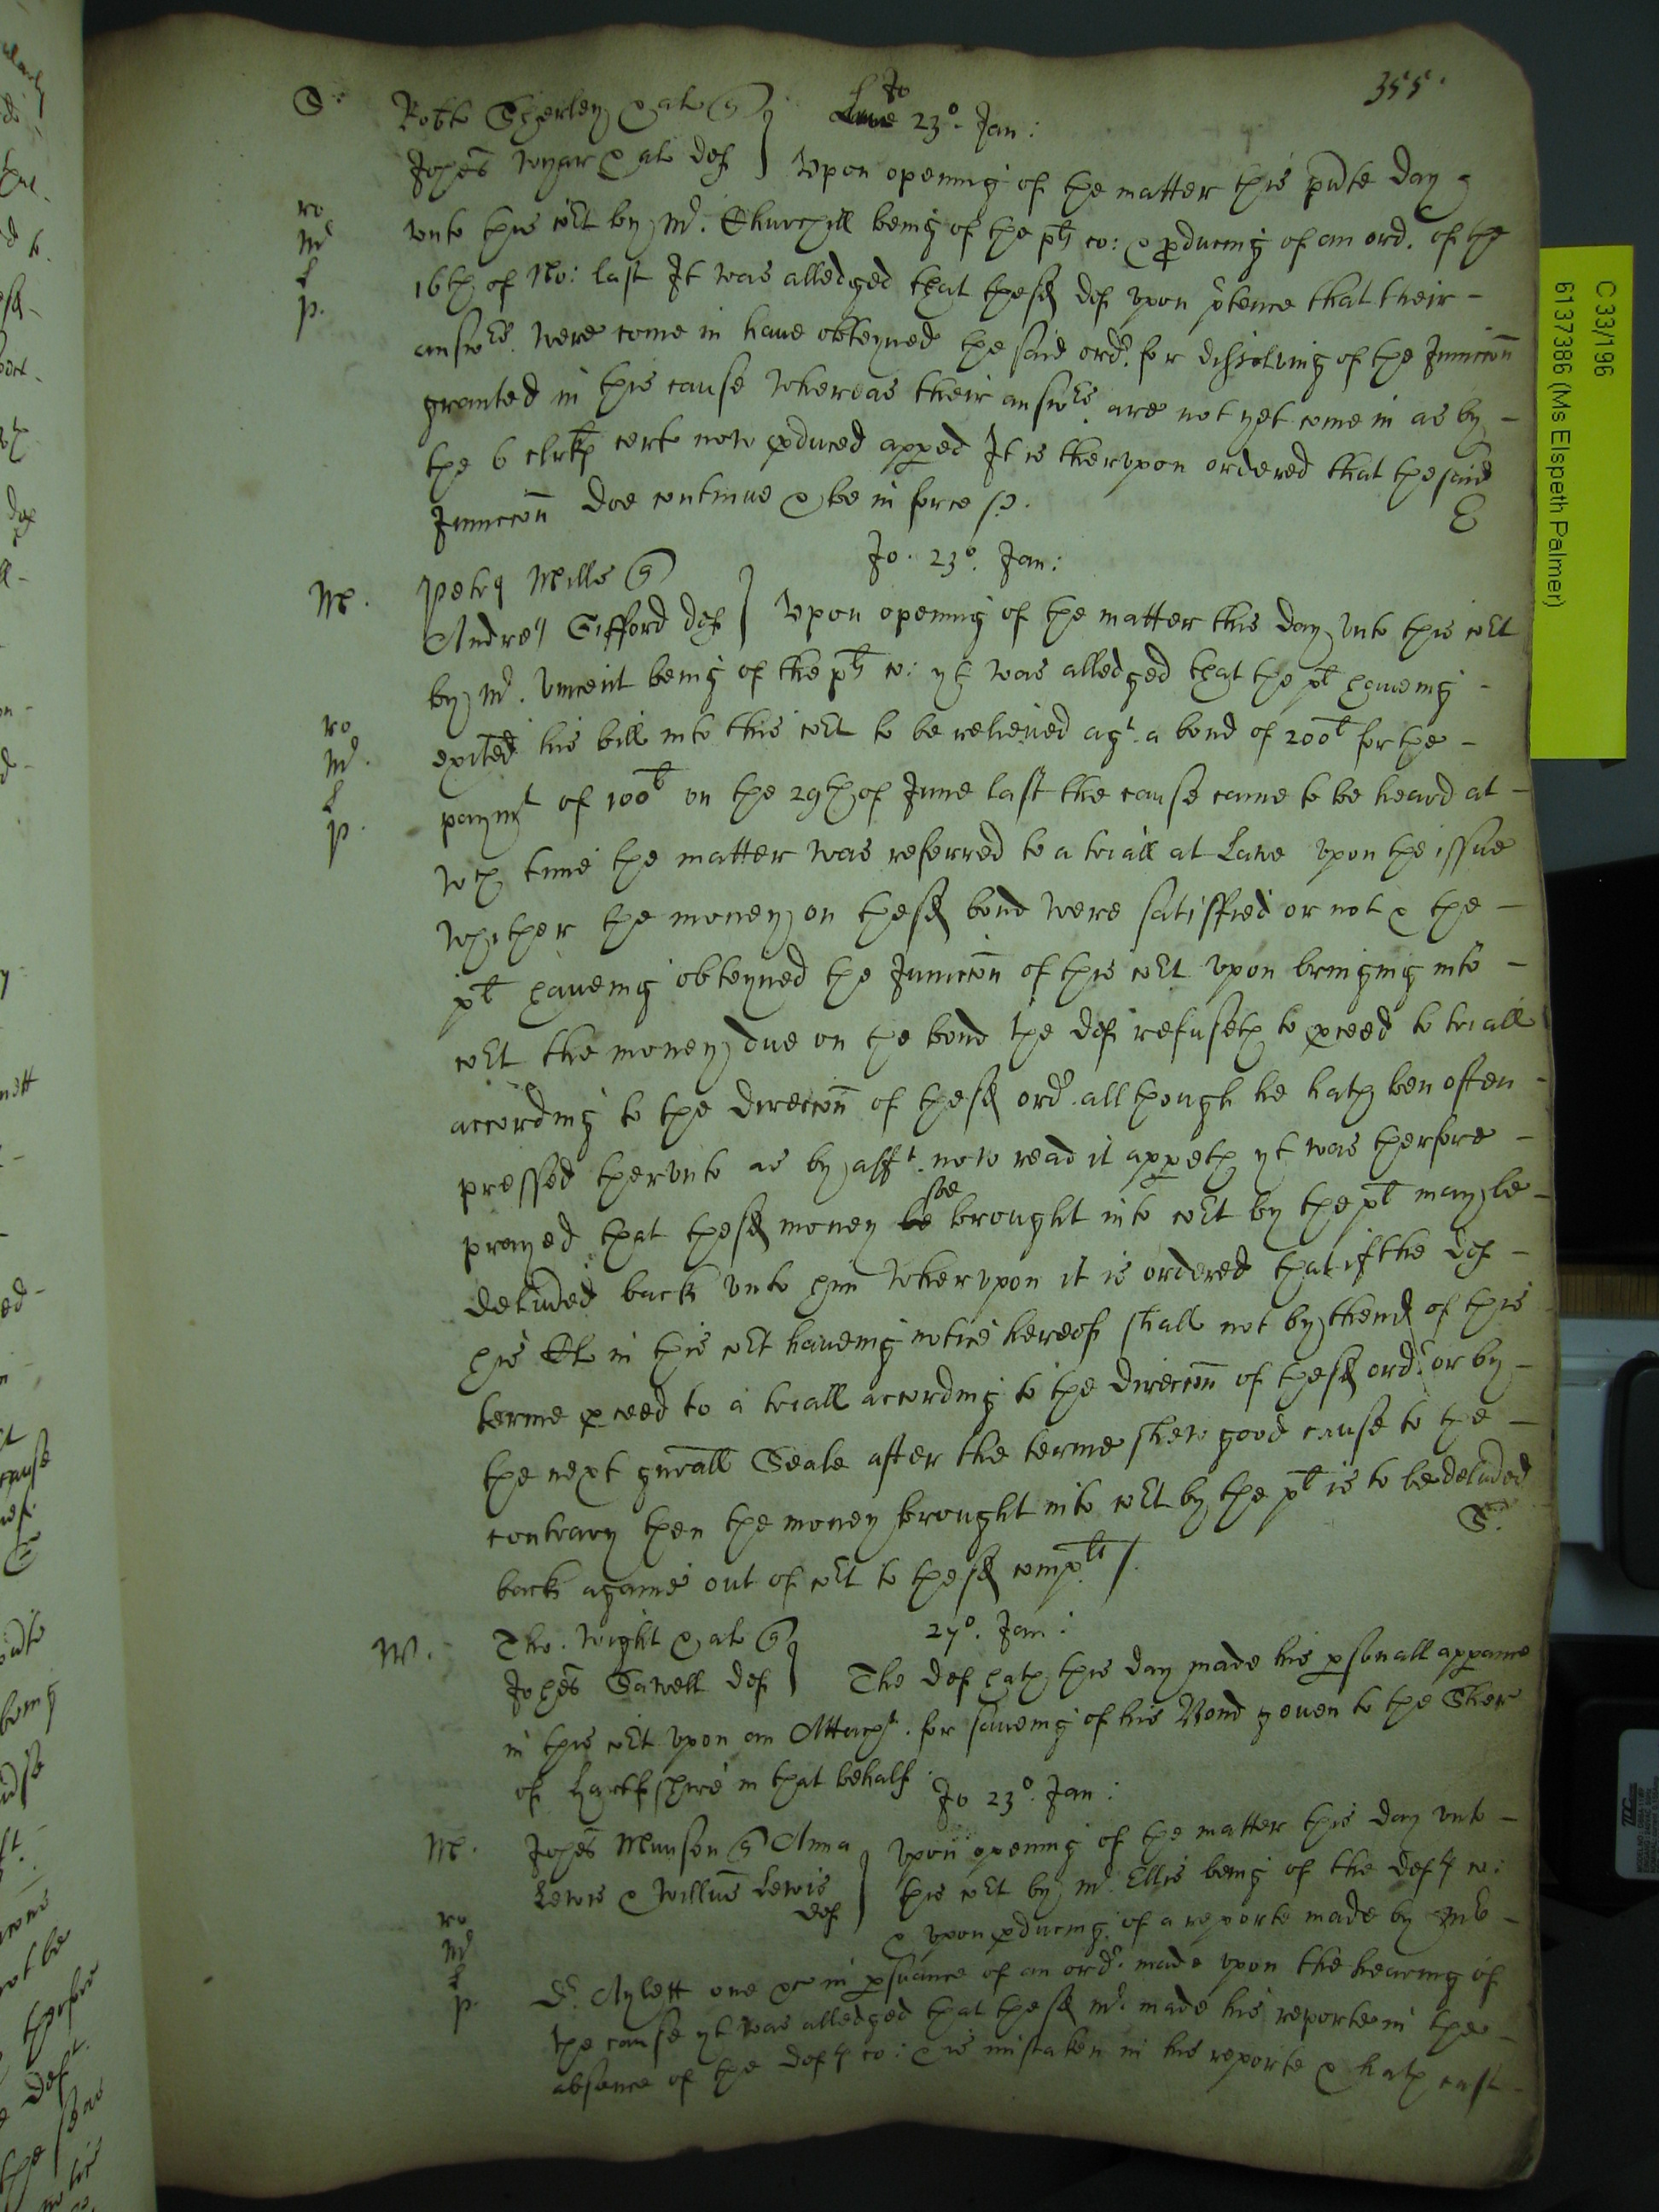 355.
S. Robto Sherley & al q Jo 23o. Jan:
Johes Wyar & al def } Upon opening of the matter this pnte day
unto this cort by Mr. Churchill being of the plts co: & producing of an ord. of the
16th of No: last It was alledged that the sd def upon ptence that their
answrs. were come in have obteyned the said ordr. for dissolving of the Iniuccon
granted in this cause whereas their answrs are not yet come in as by
the 6 clrks cert now produced appeed It is therupon ordered that the said
Iniuccon doe continue & be in force
E
Jo. 23o. Jan:
M. Petrq Mills q
Andreas Gifford def } Upon opening of the matter this day unto this cort
by Mr. Vincent being of the plts co: yt was alledged that the plt haueing
exited his bill into this cort to be releiued agt. a bond of 200l for the
paymt of 100l on the 29th of June last the cause came to be heard at
wch time the matter was referred to a triall at Lawe upon the issue
whither the money on the sd bond were satisffied or not & the
plt haueing obteyned the Iniuccon of this cort upon bringing into
cort the money due on the bond the def refuseth to pceed to triall
according to the direccon of the sd ordr. allthough he hath ben often
pressed therunto as by afft. now read it appeth yt was therfore
prayed that the sd money soe brought into cort by the plt may be
deliuded back unto him Wherupon it is ordered that if the def
his Clr in this cort haueing notice hereof shall not by thend of this
terme pceed to a triall according to the direccon of the sd ordr. or by
the next gnrall Seale after the terme shew good cause to the
contrary then the money brought into cort by the plt is to be deliuded
back againe out of cort to the sd complts /.
S.
27o. Jan:
W. Tho. Wight & al q
Johes Sawell def } The def hath this day made his psonall appance
in this cort upon an Attachmt. for saueing of his Bond geuen to the Sher
of Hartfshire in that behalf
Jo 23o. Jan:
M. Johes Munson q Anna } Upon opening of the matter this day unto
Lewis & Willus Lewis def } this cort by Mr Ellis being of the defts co:
& upon pducing of a reporte made by Mr
Dr. Aylett one &c in psuance of an ordr. made upon the hearing of
the cause yt was alledged that the sd Mr. made his reporte in the
absence of the defts co: & is mistaken in his reporte & hath cast
ro
Mr
L
p.
ro
Mr.
L
p.
ro
Mr
L
p.
C 33/196
6137386 (Ms Elspeth Palmer)